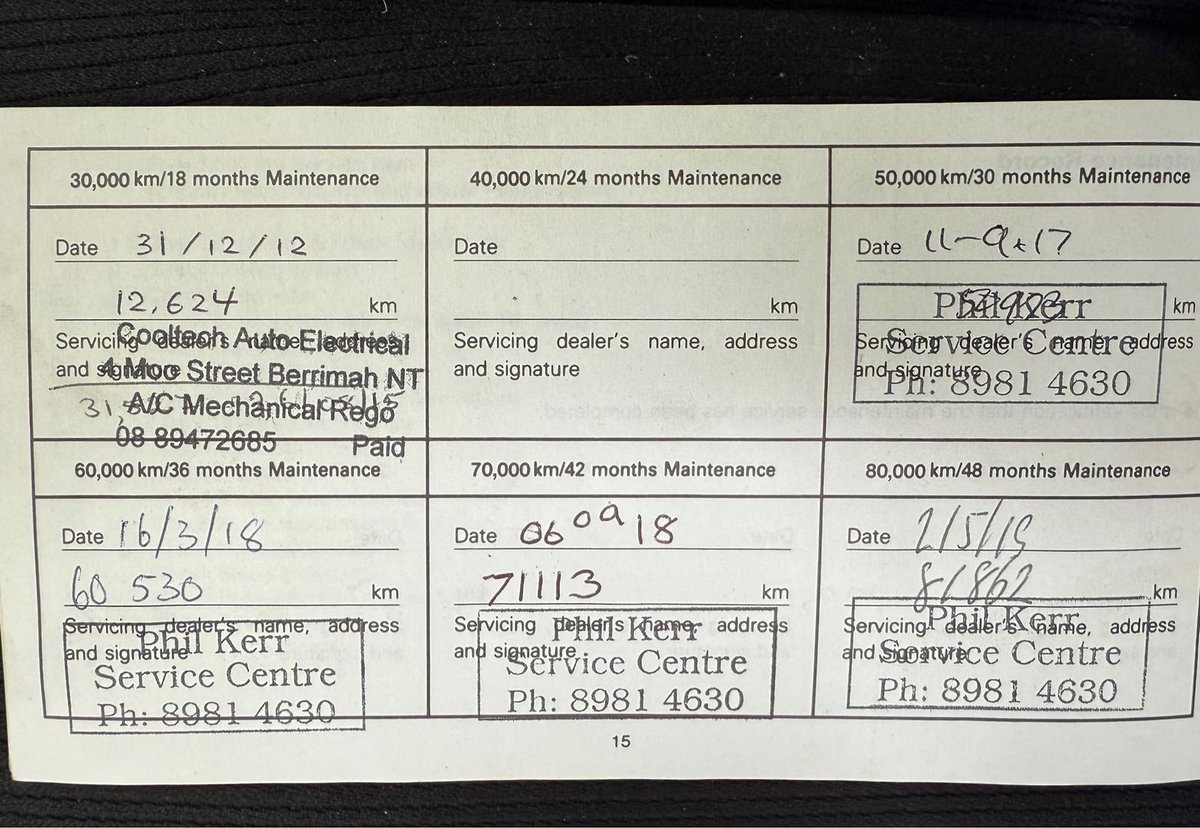 30,000 km/18 months Maintenance
Date 31/12/12
12,624 km
Servicing dealer's name, address
and signature
Cooltech Auto Electrical
4 Moo Street Berrimah NT
A/C Mechanical Rego
08 89472685 Paid
40,000 km/24 months Maintenance
Date
km
Servicing dealer's name, address
and signature
50,000 km/30 months Maintenance
Date 11-9-17
km
Servicing dealer's name, address
and signature
Phil Kerr
Service Centre
Ph: 8981 4630
60,000 km/36 months Maintenance
Date 16/3/18
60 530 km
Servicing dealer's name, address
and signature
Phil Kerr
Service Centre
Ph: 8981 4630
70,000 km/42 months Maintenance
Date 06 09 18
71113 km
Servicing dealer's name, address
and signature
Phil Kerr
Service Centre
Ph: 8981 4630
80,000 km/48 months Maintenance
Date 2/5/19
81862 km
Servicing dealer's name, address
and signature
Phil Kerr
Service Centre
Ph: 8981 4630
15